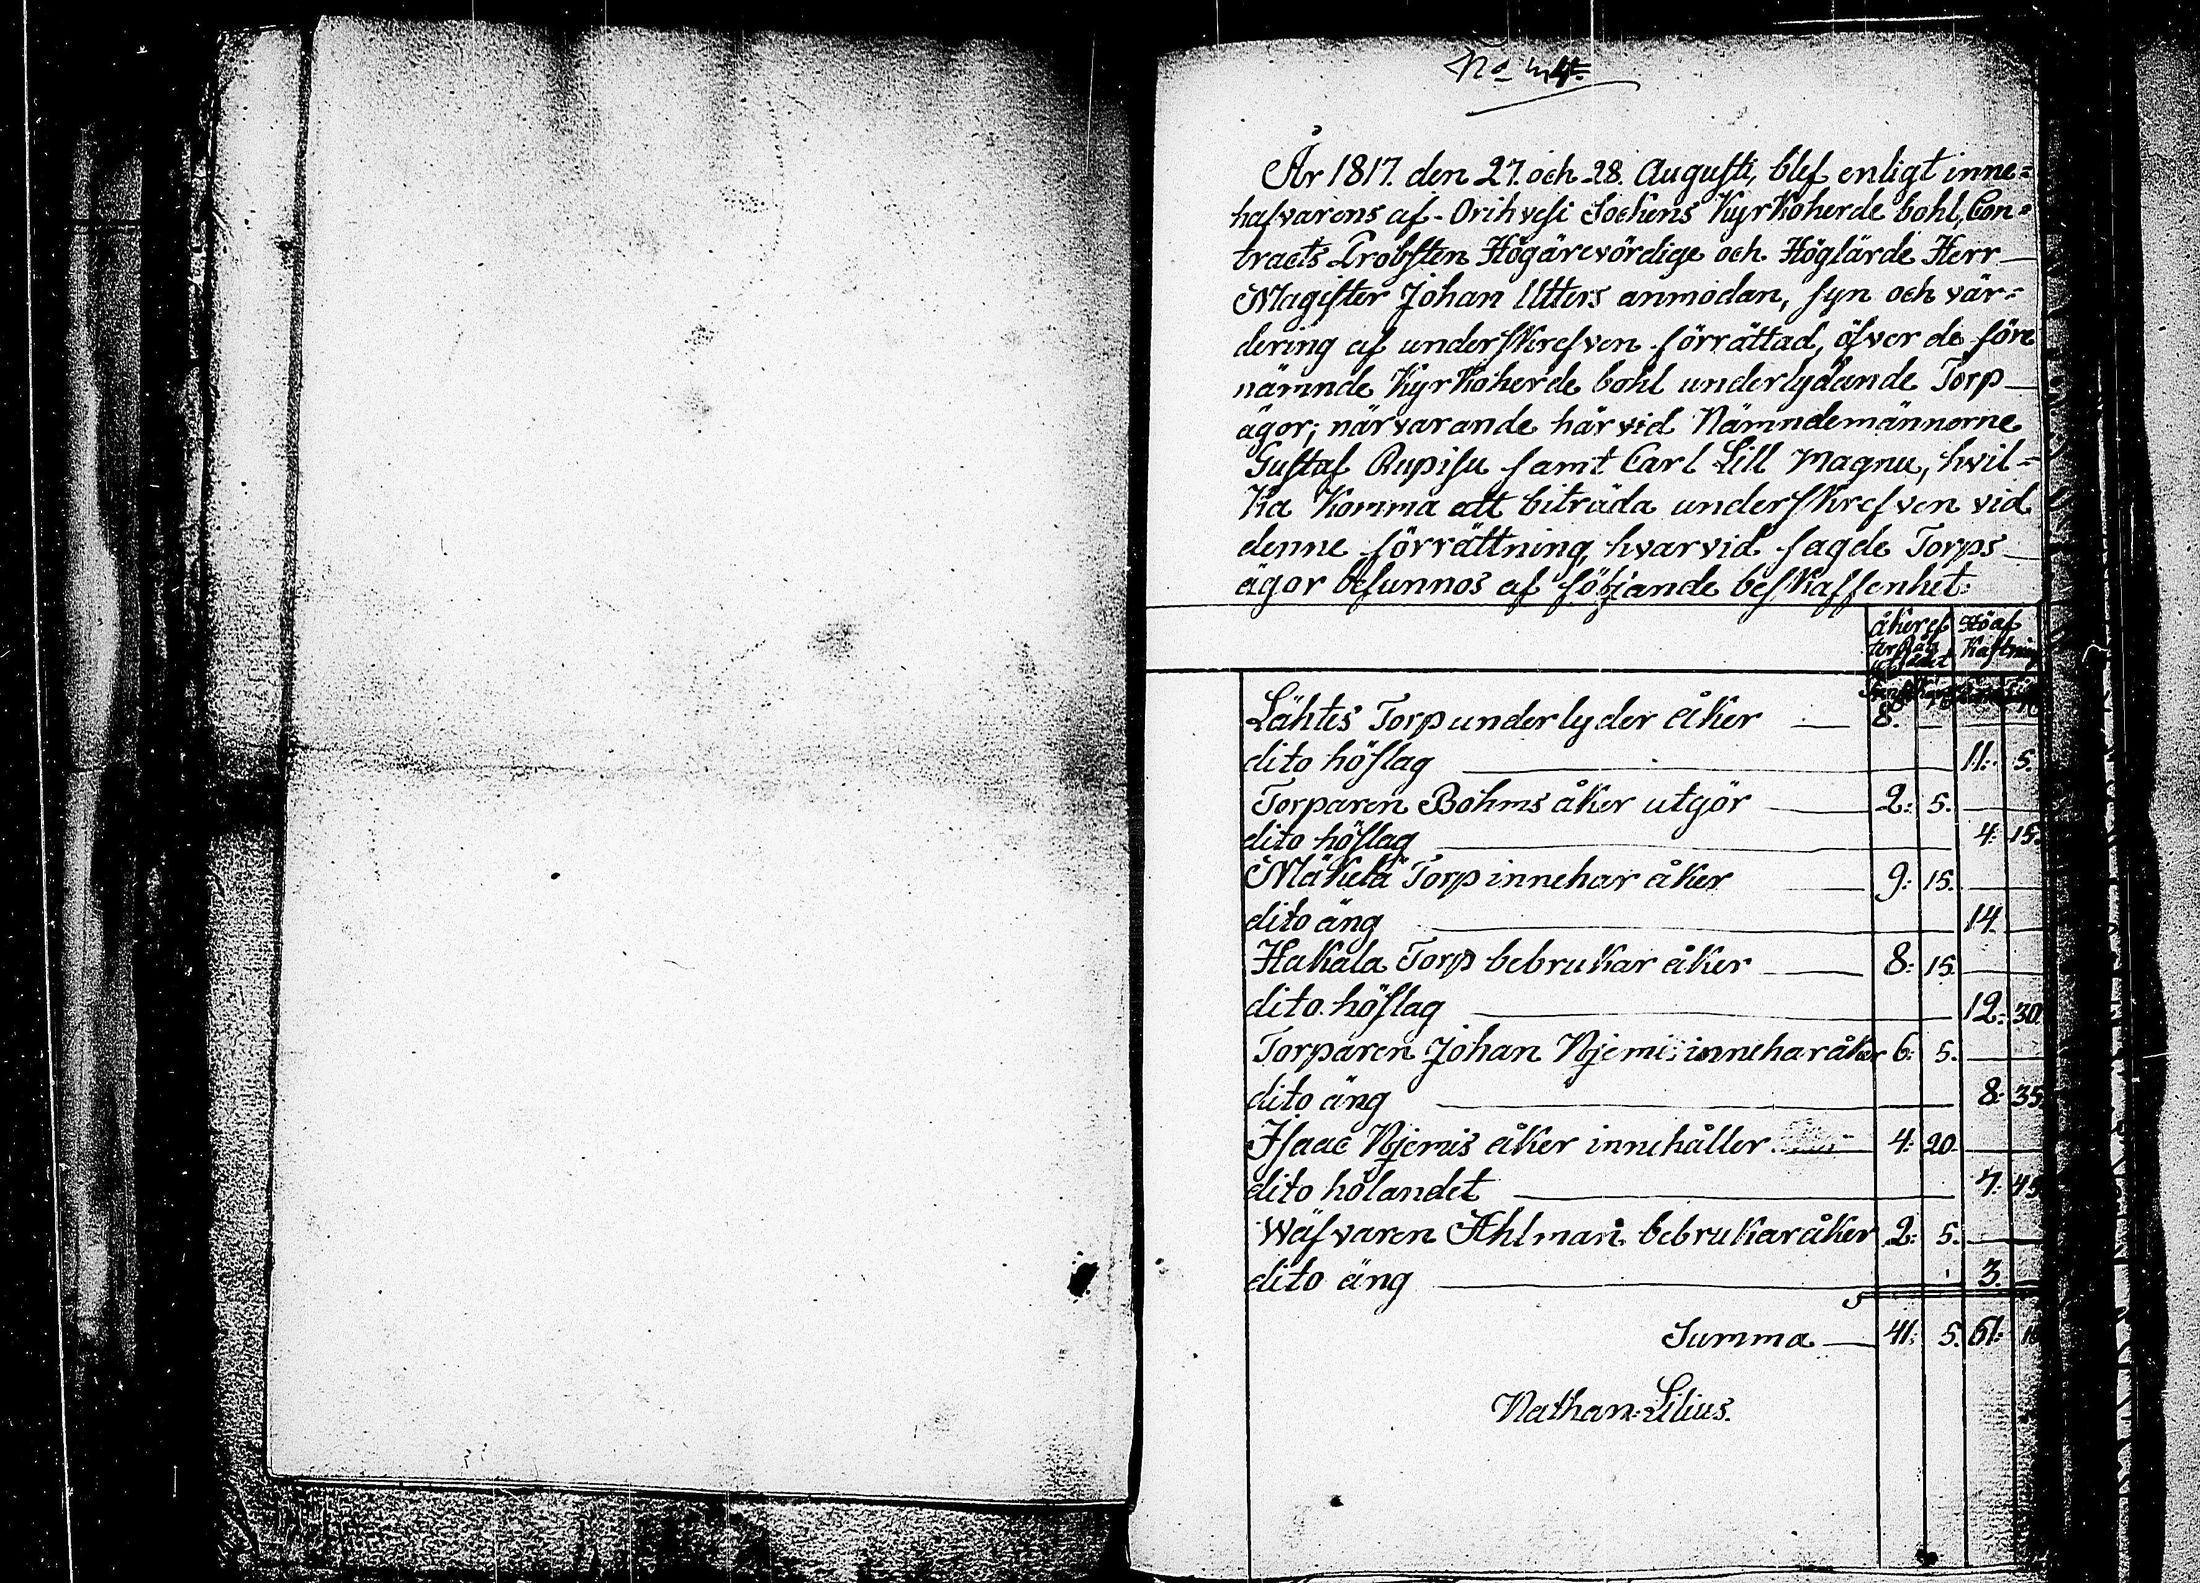 No
År 1817. den 27. och 28. Augusti, blef enligt inne=
hafvarens af Orihvesi Sockens Kyrkoherde bohl, Con=
tracts Probsten Högärevördige och Höglärde Herr
Magister Johan Utters anmodan, syn och vär=
dering af underskrefven förrättad, öfver de före
nämnde Kyrkoherde bohl underlydande Torp
ägor; närvarande härvid Nämndemännerne
Gustaf Rupisu samt Carl Lill Magnu, hvil=
ka komma att biträda underskrefven vid
denne förrättning hvarvid sagde Torps
ägor befunnos af följande beskaffenhet:
åker ef Hö af
ter kastning
utsädet
Lähtis Torp underlyder åker 8.
dito höslag 11: 5.
Torparen Bohms åker utgör 2: 5.
dito höslag 4: 15.
Mäkelä Torp innehar åker 9: 15.
dito äng 14.
Hakala Torp bebrukar åker 8: 15.
dito höslag 12: 30.
Torparen Johan Njemis innehar åker 6: 5.
dito äng 8: 35.
Isaac Njemis åker innehåller 4: 20.
dito hölandet 7: 45
Wäfvaren Ahlman bebrukar åker 2: 5.
dito äng 3.
Summa 41: 5. 61:
Nathan Lilius.